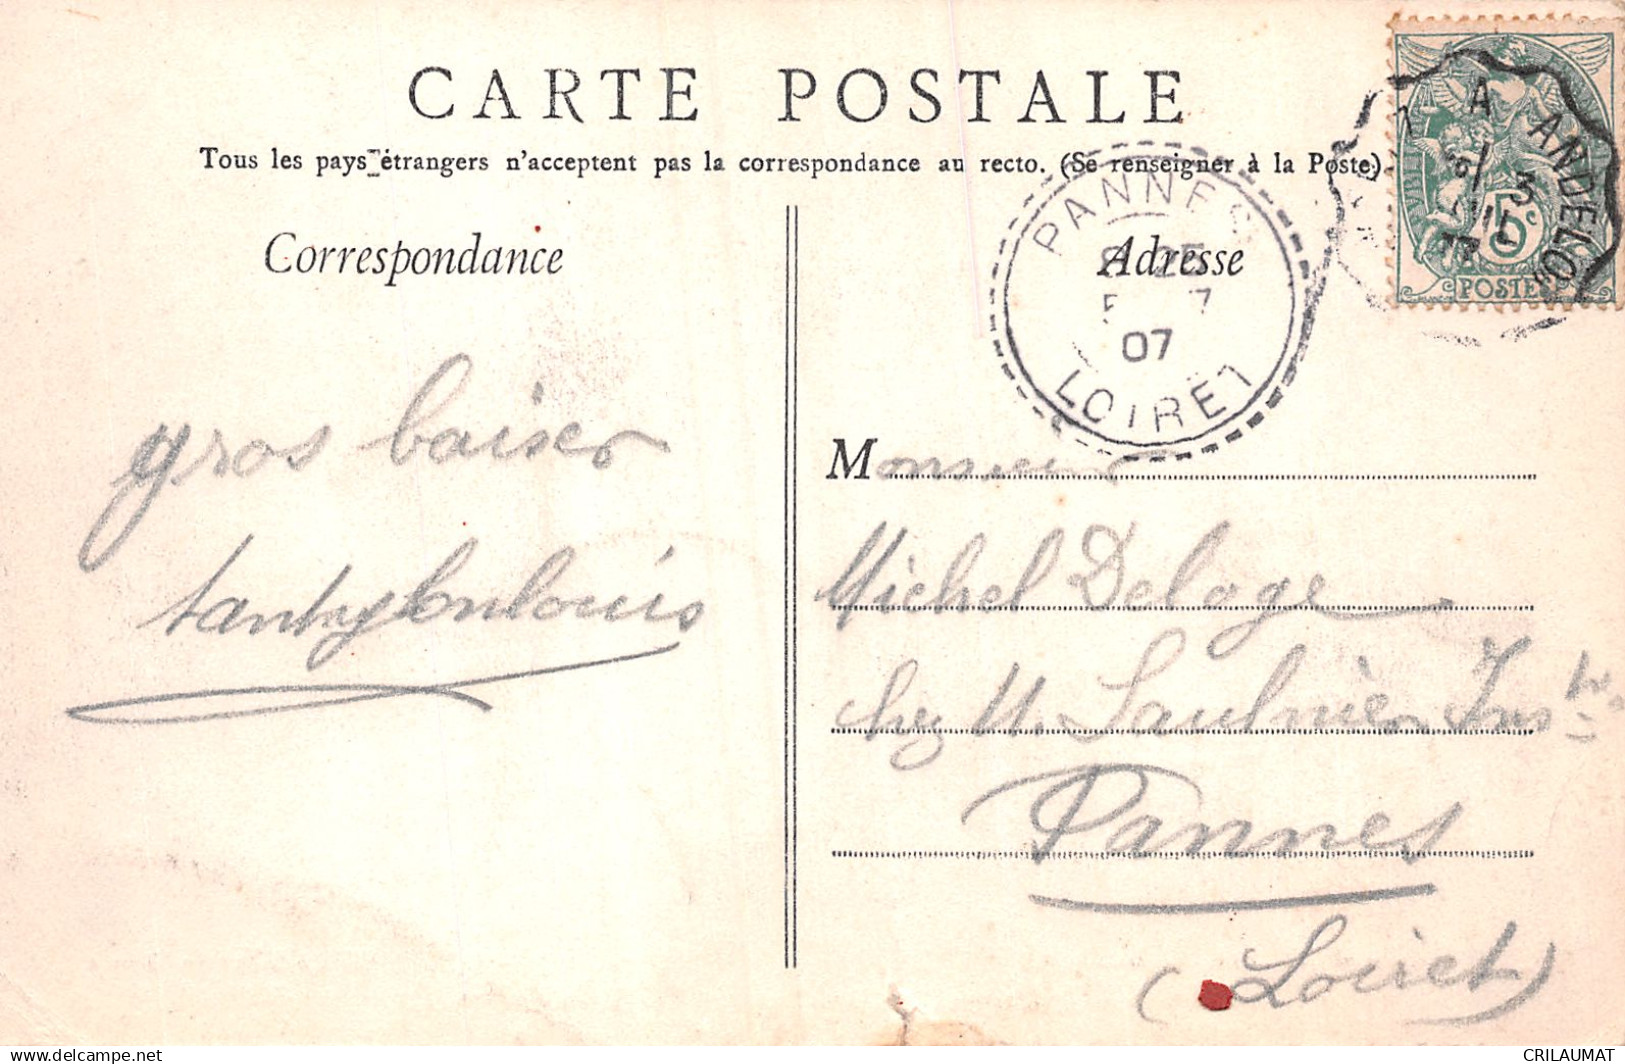 CARTE POSTALE
Tous les pays étrangers n'acceptent pas la correspondance au recto. (Se renseigner à la Poste)
Correspondance
Adresse
PANNES
8 25
5 7
07
LOIRET
A ANDELO
3
5c
POSTES
gros baiser
Monsieur
Michel Deloge
chez M. Saulnier Instr
Pannes
(Loiret)
www.delcampe.net
CRILAUMAT